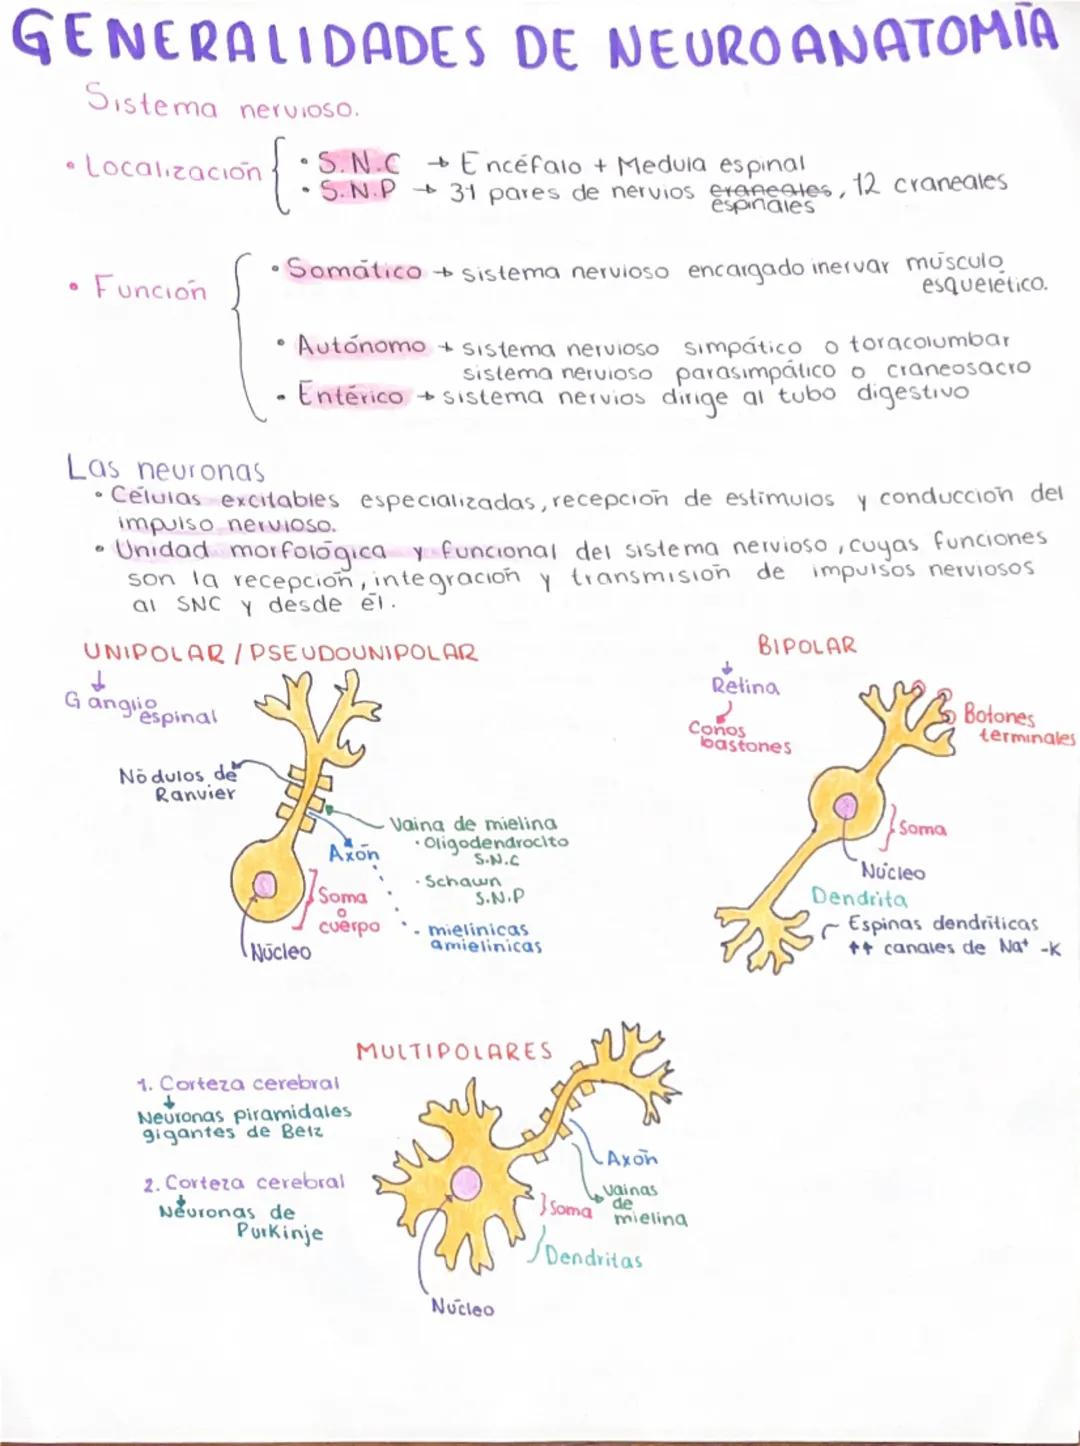 GENERALIDADES DE NEUROANATOMÍA
Sistema nervioso.
• Localización
• S.N.C → Encéfalo + Medula espinal
• S.N.P → 31 pares de nervios craneales, 12 craneales
espinales
• Función
• Somático → sistema nervioso encargado inervar músculo
esquelético.
• Autónomo → sistema nervioso simpático o toracolumbar
sistema nervioso parasimpático o craneosacro
• Entérico → sistema nervios dirige al tubo digestivo
Las neuronas
• Células excitables especializadas, recepción de estimulos y conducción del
impulso nervioso.
• Unidad morfológica y funcional del sistema nervioso, cuyas funciones
son la recepción, integración y transmisión de impulsos nerviosos
al SNC y desde él.
UNIPOLAR / PSEUDOUNIPOLAR
Gánglio
espinal
Nódulos de
Ranvier
Vaina de mielina
• Oligodendrocito
S.N.C
• Schawn
S.N.P
Axón
• mielinicas
amielinicas
Soma
o
cuerpo
Núcleo
BIPOLAR
Retina
Conos
bastones
Botones
terminales
Soma
Núcleo
Dendrita
Espinas dendríticas
↑↑ canales de Na⁺ -K
MULTIPOLARES
1. Corteza cerebral
Neuronas piramidales
gigantes de Betz
2. Corteza cerebral
Neuronas de
Purkinje
Axón
Vainas
de
mielina
Soma
Dendritas
Núcleo